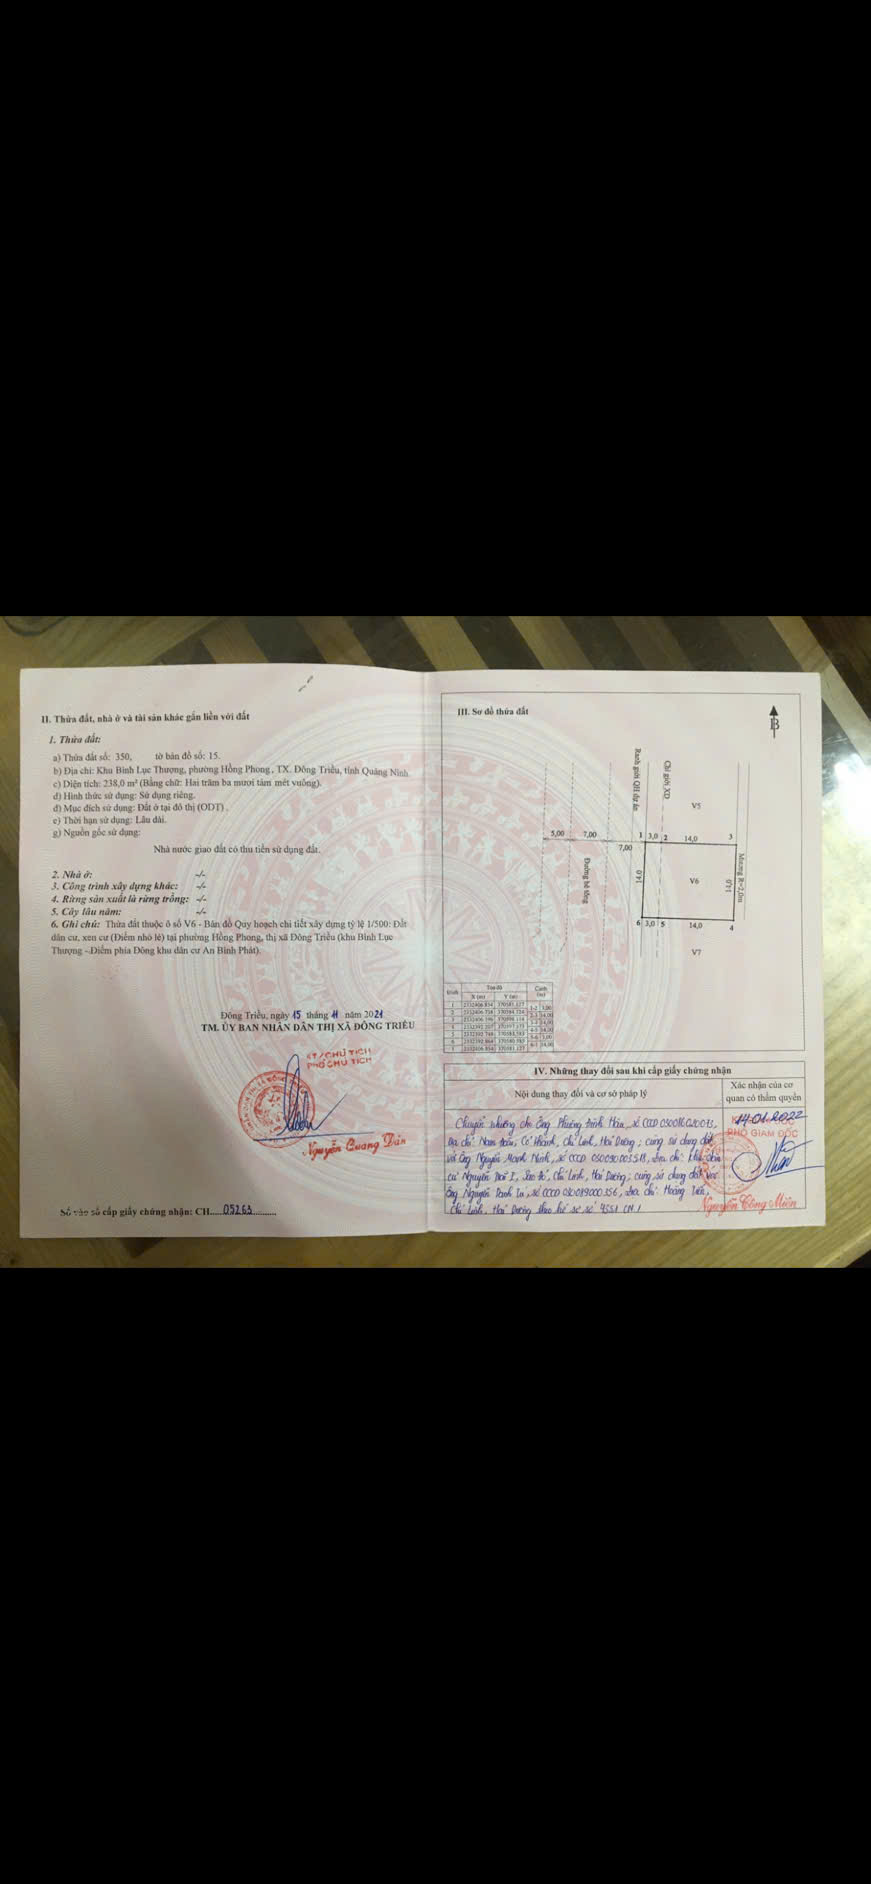 II. Thửa đất, nhà ở và tài sản khác gắn liền với đất
1. Thửa đất:
a) Thửa đất số: 350, tờ bản đồ số: 15.
b) Địa chỉ: Khu Bình Lục Thượng, phường Hồng Phong, TX. Đông Triều, tỉnh Quảng Ninh
c) Diện tích: 238,0 m² (Bằng chữ: Hai trăm ba mươi tám mét vuông).
d) Hình thức sử dụng: Sử dụng riêng.
đ) Mục đích sử dụng: Đất ở tại đô thị (ODT).
e) Thời hạn sử dụng: Lâu dài.
g) Nguồn gốc sử dụng:
Nhà nước giao đất có thu tiền sử dụng đất.
2. Nhà ở: -/-
3. Công trình xây dựng khác: -/-
4. Rừng sản xuất là rừng trồng: -/-
5. Cây lâu năm: -/-
6. Ghi chú: Thửa đất thuộc ô số V6 - Bản đồ Quy hoạch chi tiết xây dựng tỷ lệ 1/500: Đất
dân cư, xen cư (Điểm nhỏ lẻ) tại phường Hồng Phong, thị xã Đông Triều (khu Bình Lục
Thượng - Điểm phía Đông khu dân cư An Bình Phát).
Đông Triều, ngày 15 tháng 11 năm 2021
TM. ỦY BAN NHÂN DÂN THỊ XÃ ĐÔNG TRIỀU
KT/CHỦ TỊCH
PHÓ CHỦ TỊCH
Nguyễn Quang Dân
Số vào sổ cấp giấy chứng nhận: CH 05263
III. Sơ đồ thửa đất
B
Ranh giới QH dự án
Chỉ giới XD
V5
5,00 7,00 1 3,0 2 14,0 3
7,00
Đường bê tông
14,0
V6
14,0
Mương R=2,0m
6 3,0 5 14,0 4
V7
Tọa độ
Cạnh
(m)
X (m) Y (m)
IV. Những thay đổi sau khi cấp giấy chứng nhận
Nội dung thay đổi và cơ sở pháp lý
Xác nhận của cơ
quan có thẩm quyền
Chuyển nhượng cho Ông Phùng
địa chỉ: Chí Linh, Hải Dương; cùng sử dụng đất
với Ông Nguyễn Mạnh Ninh, số CCCD địa chỉ: Khu dân
cư Nguyễn Trãi I, Sao Đỏ, Chí Linh, Hải Dương; cùng sử dụng đất với
Ông Nguyễn số CCCD địa chỉ: Hoàng Tiến,
Chí Linh, Hải Dương theo hồ sơ số
14-01-2022
PHÓ GIÁM ĐỐC
Nguyễn Công Miên